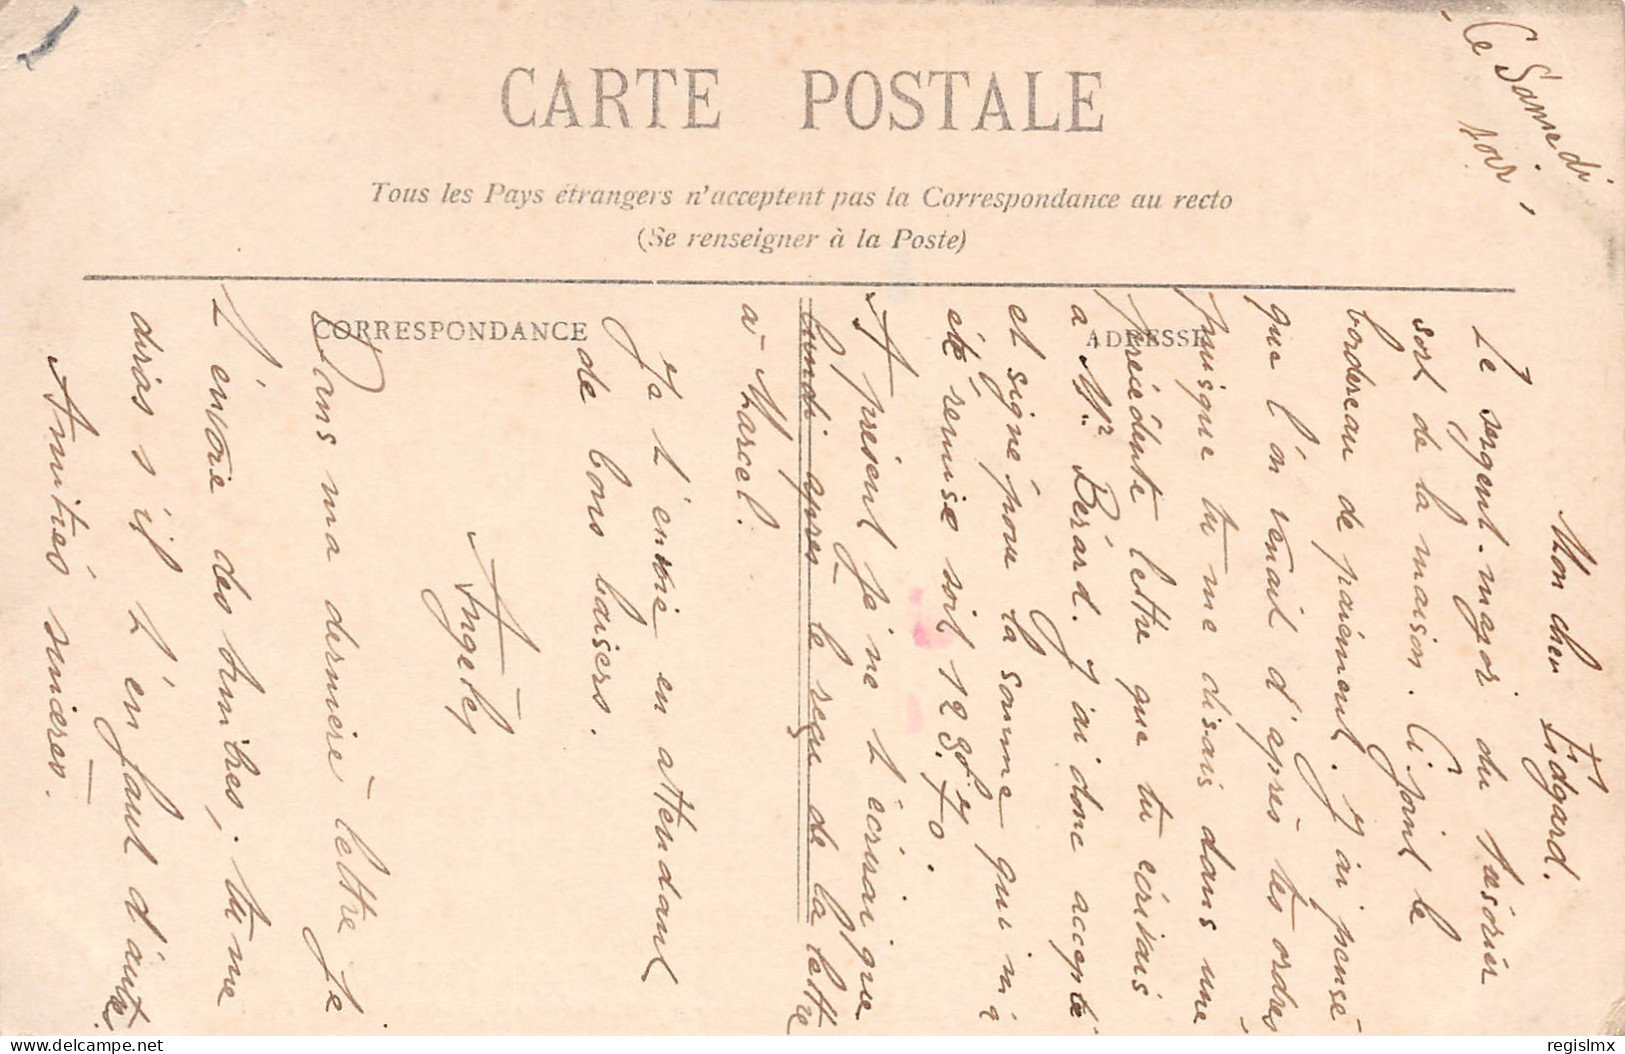 CARTE POSTALE
Tous les Pays étrangers n'acceptent pas la Correspondance au recto
(Se renseigner à la Poste)
CORRESPONDANCE
ADRESSE
Ce Samedi
soir
Mon cher Edgard.
Le sergent-major du trésorier
sort de la maison. Ci joint le
bordereau de paiement. J'ai pensé
que l'on venait d'après tes ordres
puisque tu me disais dans une
précédente lettre que tu écrivais
a Mr Bérard. J'ai donc accepté
et signé pour la somme qui m'a
été remise soit 129f70.
A présent je ne t'écrirai que
lundi après le reçu de la lettre
à Marcel.
Je t'envoie en attendant
de bons baisers.
Angèle
Dans ma dernière lettre je
t'envoie des timbres, tu me
diras s'il t'en faut d'autre.
Amitiés sincères.
delcampe.net
regislmx